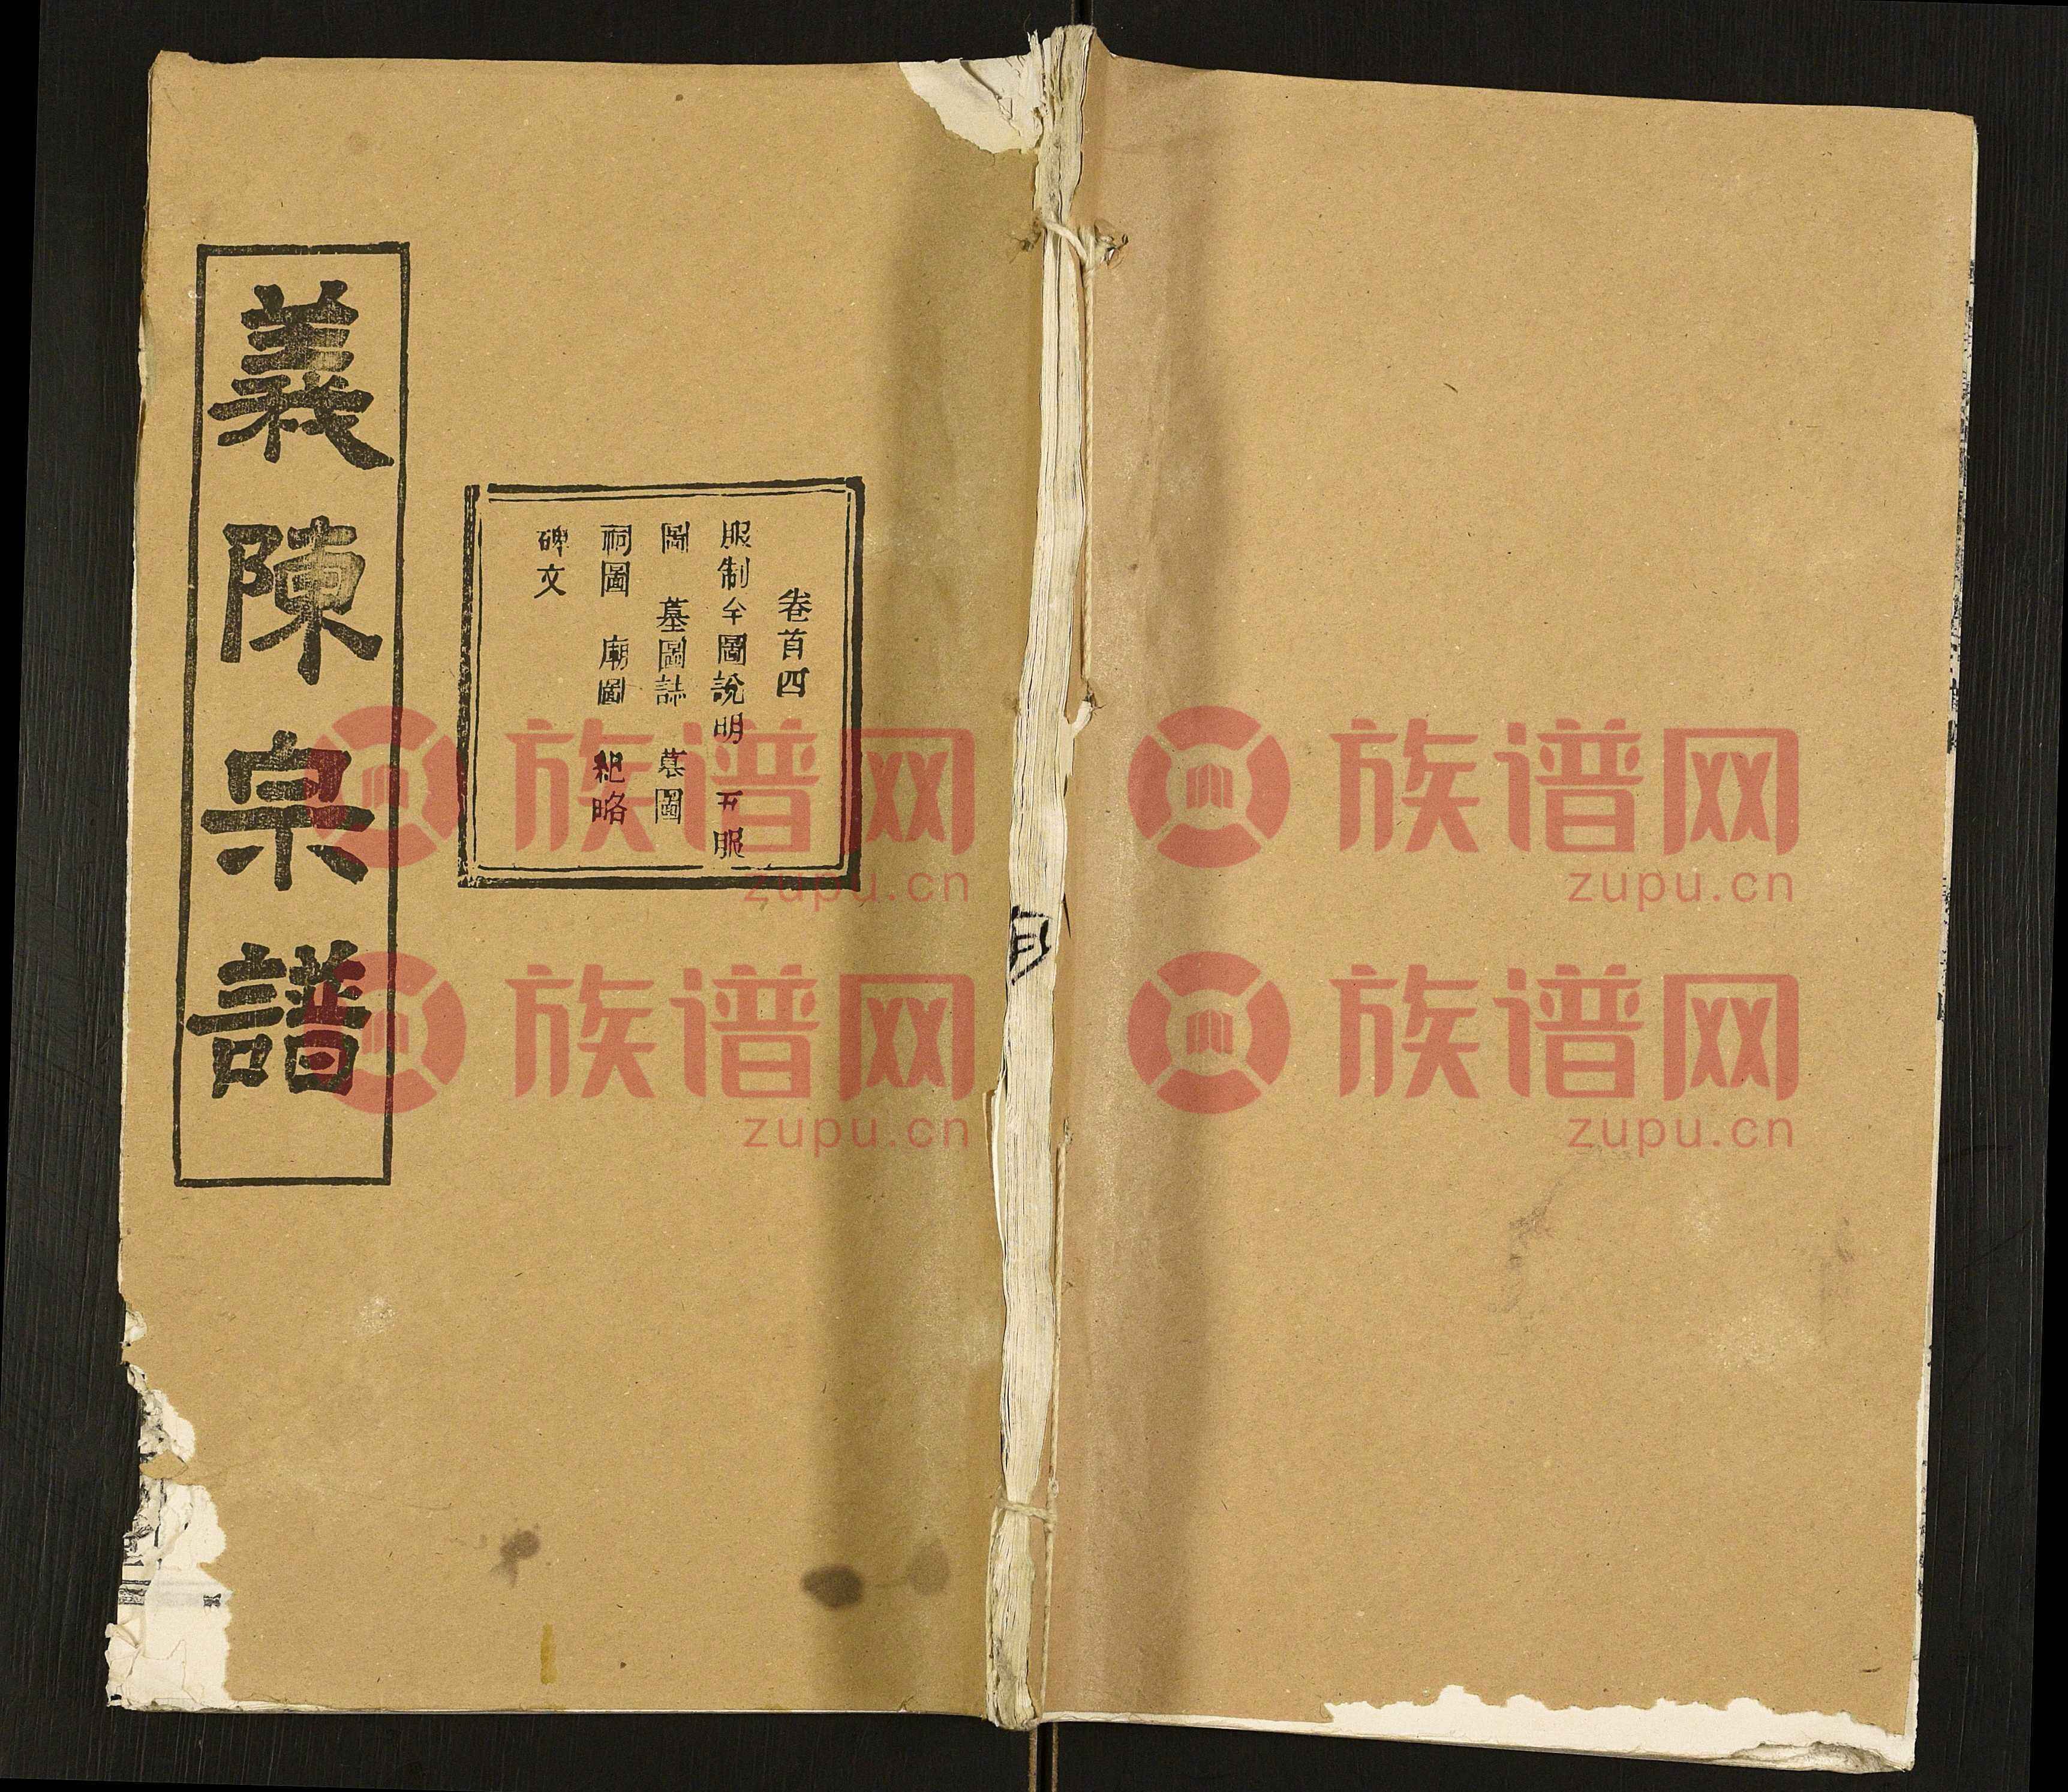 義陳宗譜
卷首四
服制全圖說明 五服
圖 墓圖誌 墓圖
祠圖 廟圖 紀略
碑文
族谱网
zupu.cn
族谱网
zupu.cn
族谱网
zupu.cn
族谱网
zupu.cn